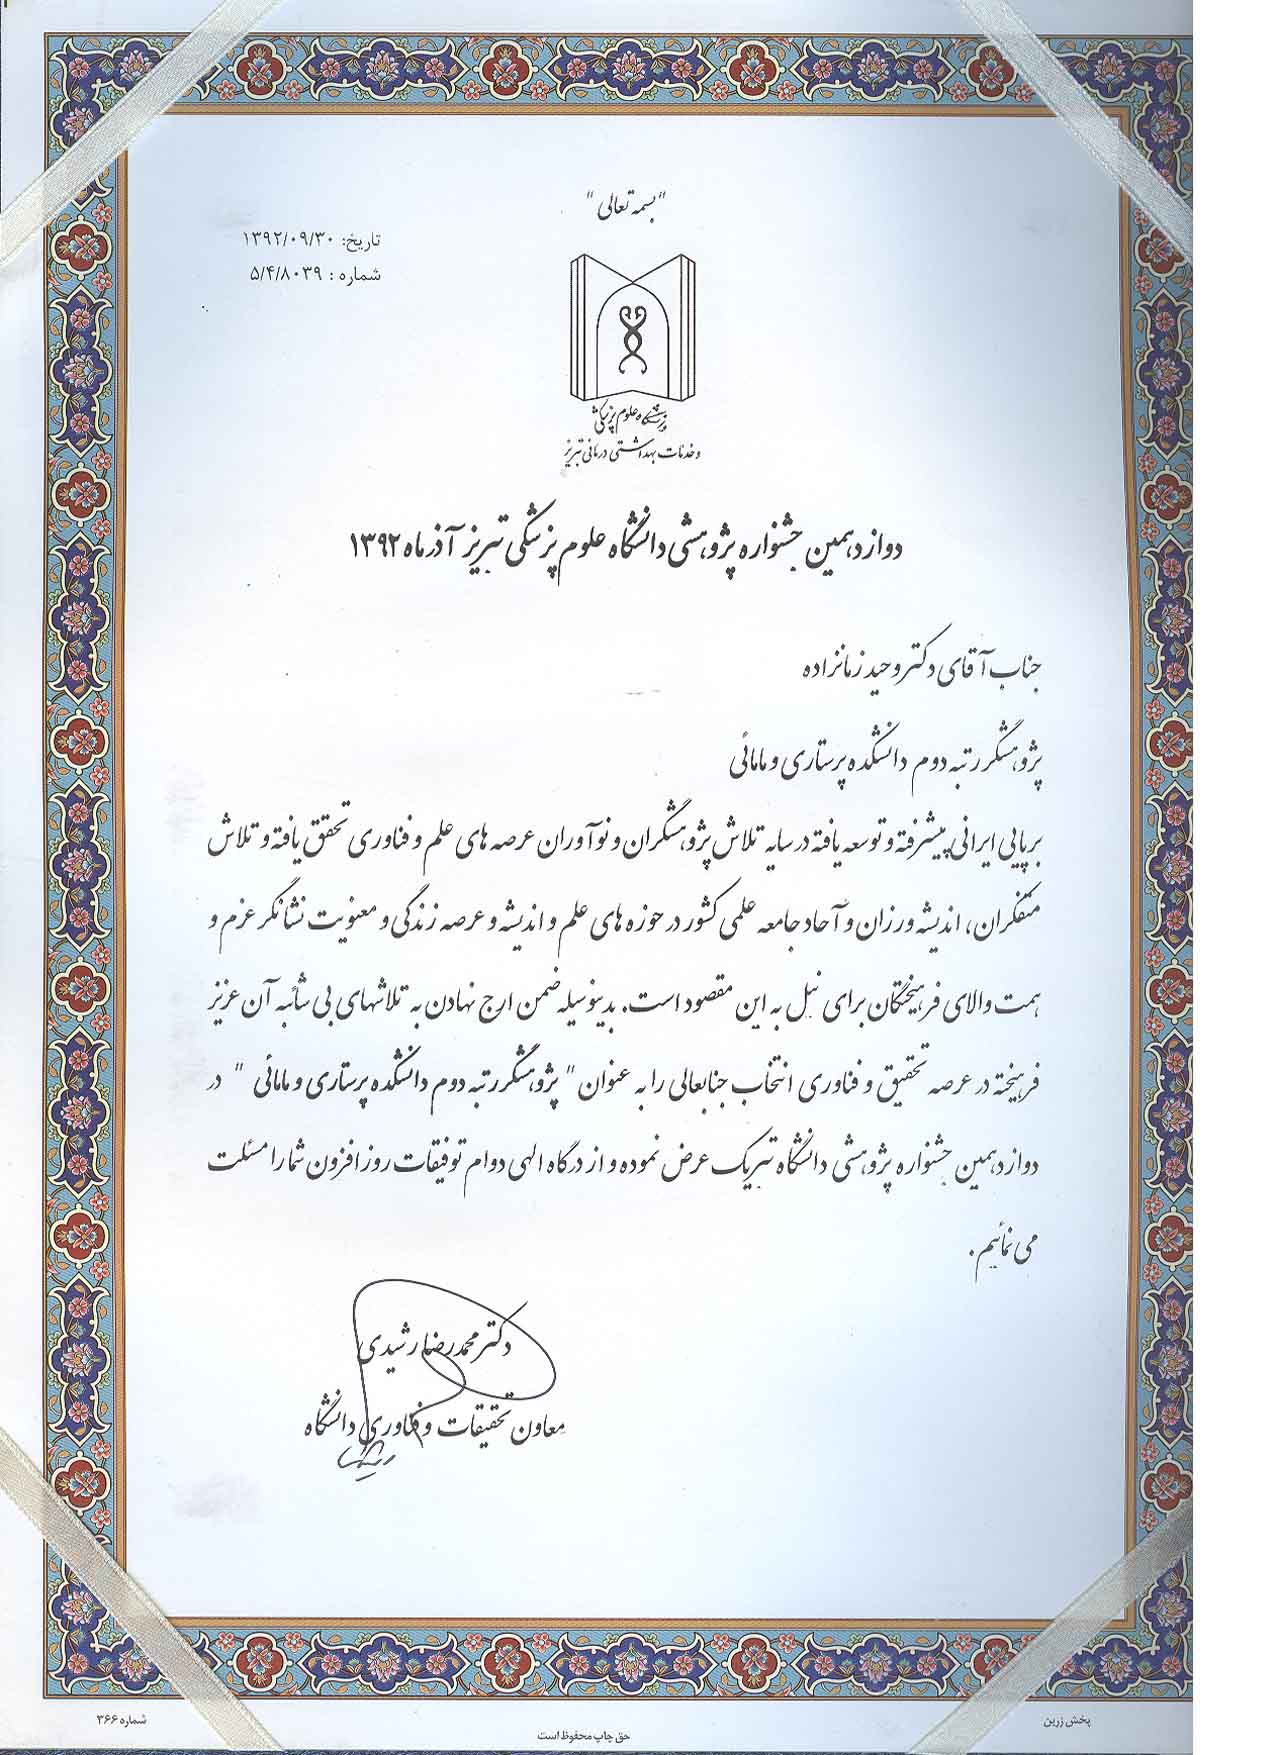 "بسمه تعالی"
تاریخ: ۱۳۹۲/۰۹/۳۰
شماره : ۵/۴/۸۰۳۹
دانشگاه علوم پزشکی
و خدمات بهداشتی درمانی تبریز
دوازدهمین جشنواره پژوهشی دانشگاه علوم پزشکی تبریز آذر ماه ۱۳۹۲
جناب آقای دکتر وحید زمانزاده
پژوهشگر رتبه دوم دانشکده پرستاری و مامائی
برپایی ایرانی پیشرفته و توسعه یافته در سایه تلاش پژوهشگران و نوآوران عرصه های علم و فناوری تحقق یافته و تلاش
متفکران، اندیشه ورزان و آحاد جامعه علمی کشور در حوزه های علم و اندیشه و عرصه زندگی و معنویت نشانگر عزم و
همت والای فرهیختگان برای نیل به این مقصود است. بدینوسیله ضمن ارج نهادن به تلاشهای بی شائبه آن عزیز
فرهیخته در عرصه تحقیق و فناوری انتخاب جنابعالی را به عنوان " پژوهشگر رتبه دوم دانشکده پرستاری و مامائی " در
دوازدهمین جشنواره پژوهشی دانشگاه تبریک عرض نموده و از درگاه الهی دوام توفیقات روز افزون شما را مسئلت
می نمائیم.
دکتر محمدرضا رشیدی
معاون تحقیقات و فناوری دانشگاه
پخش زرین
حق چاپ محفوظ است
شماره ۳۶۶